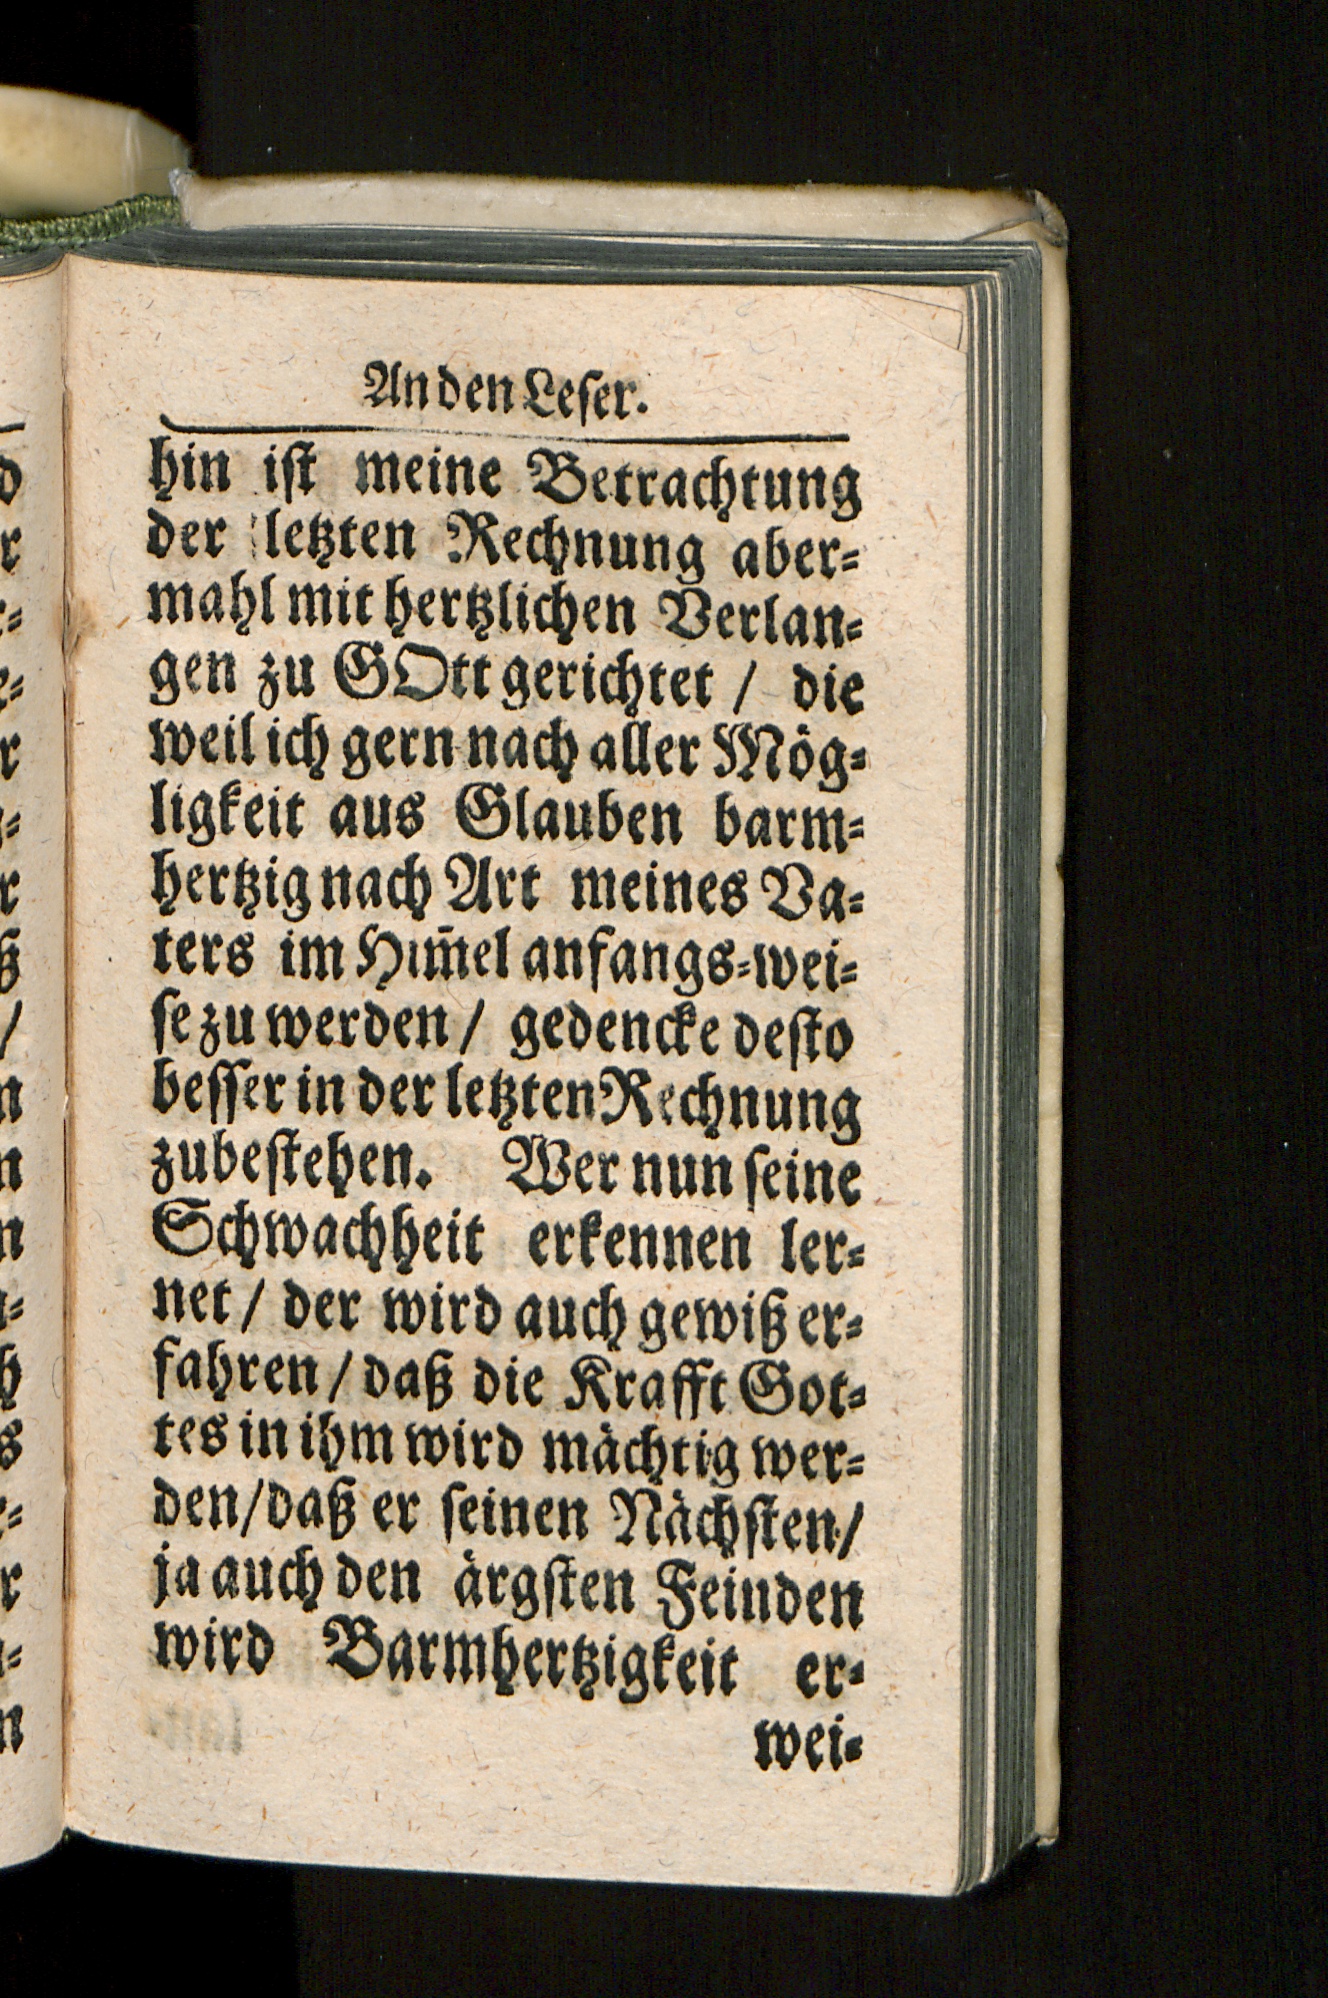 An den Leser.
hin ist meine Betrachtung
der letzten Rechnung aber⸗
mahl mit hertzlichen Verlan⸗
gen zu GOtt gerichtet / die
weil ich gern nach aller Mög⸗
ligkeit aus Glauben barm⸗
hertzig nach Art meines Va⸗
ters im Him̃el anfangs⸗wei⸗
se zu werden / gedencke desto
besser in der letzten Rechnung
zubestehen. Wer nun seine
Schwachheit erkennen ler⸗
net / der wird auch gewiß er⸗
fahren / daß die Krafft Got⸗
tes in ihm wird mächtig wer⸗
den / daß er seinen Nächsten /
ja auch den ärgsten Feinden
wird Barmhertzigkeit er⸗
wei⸗